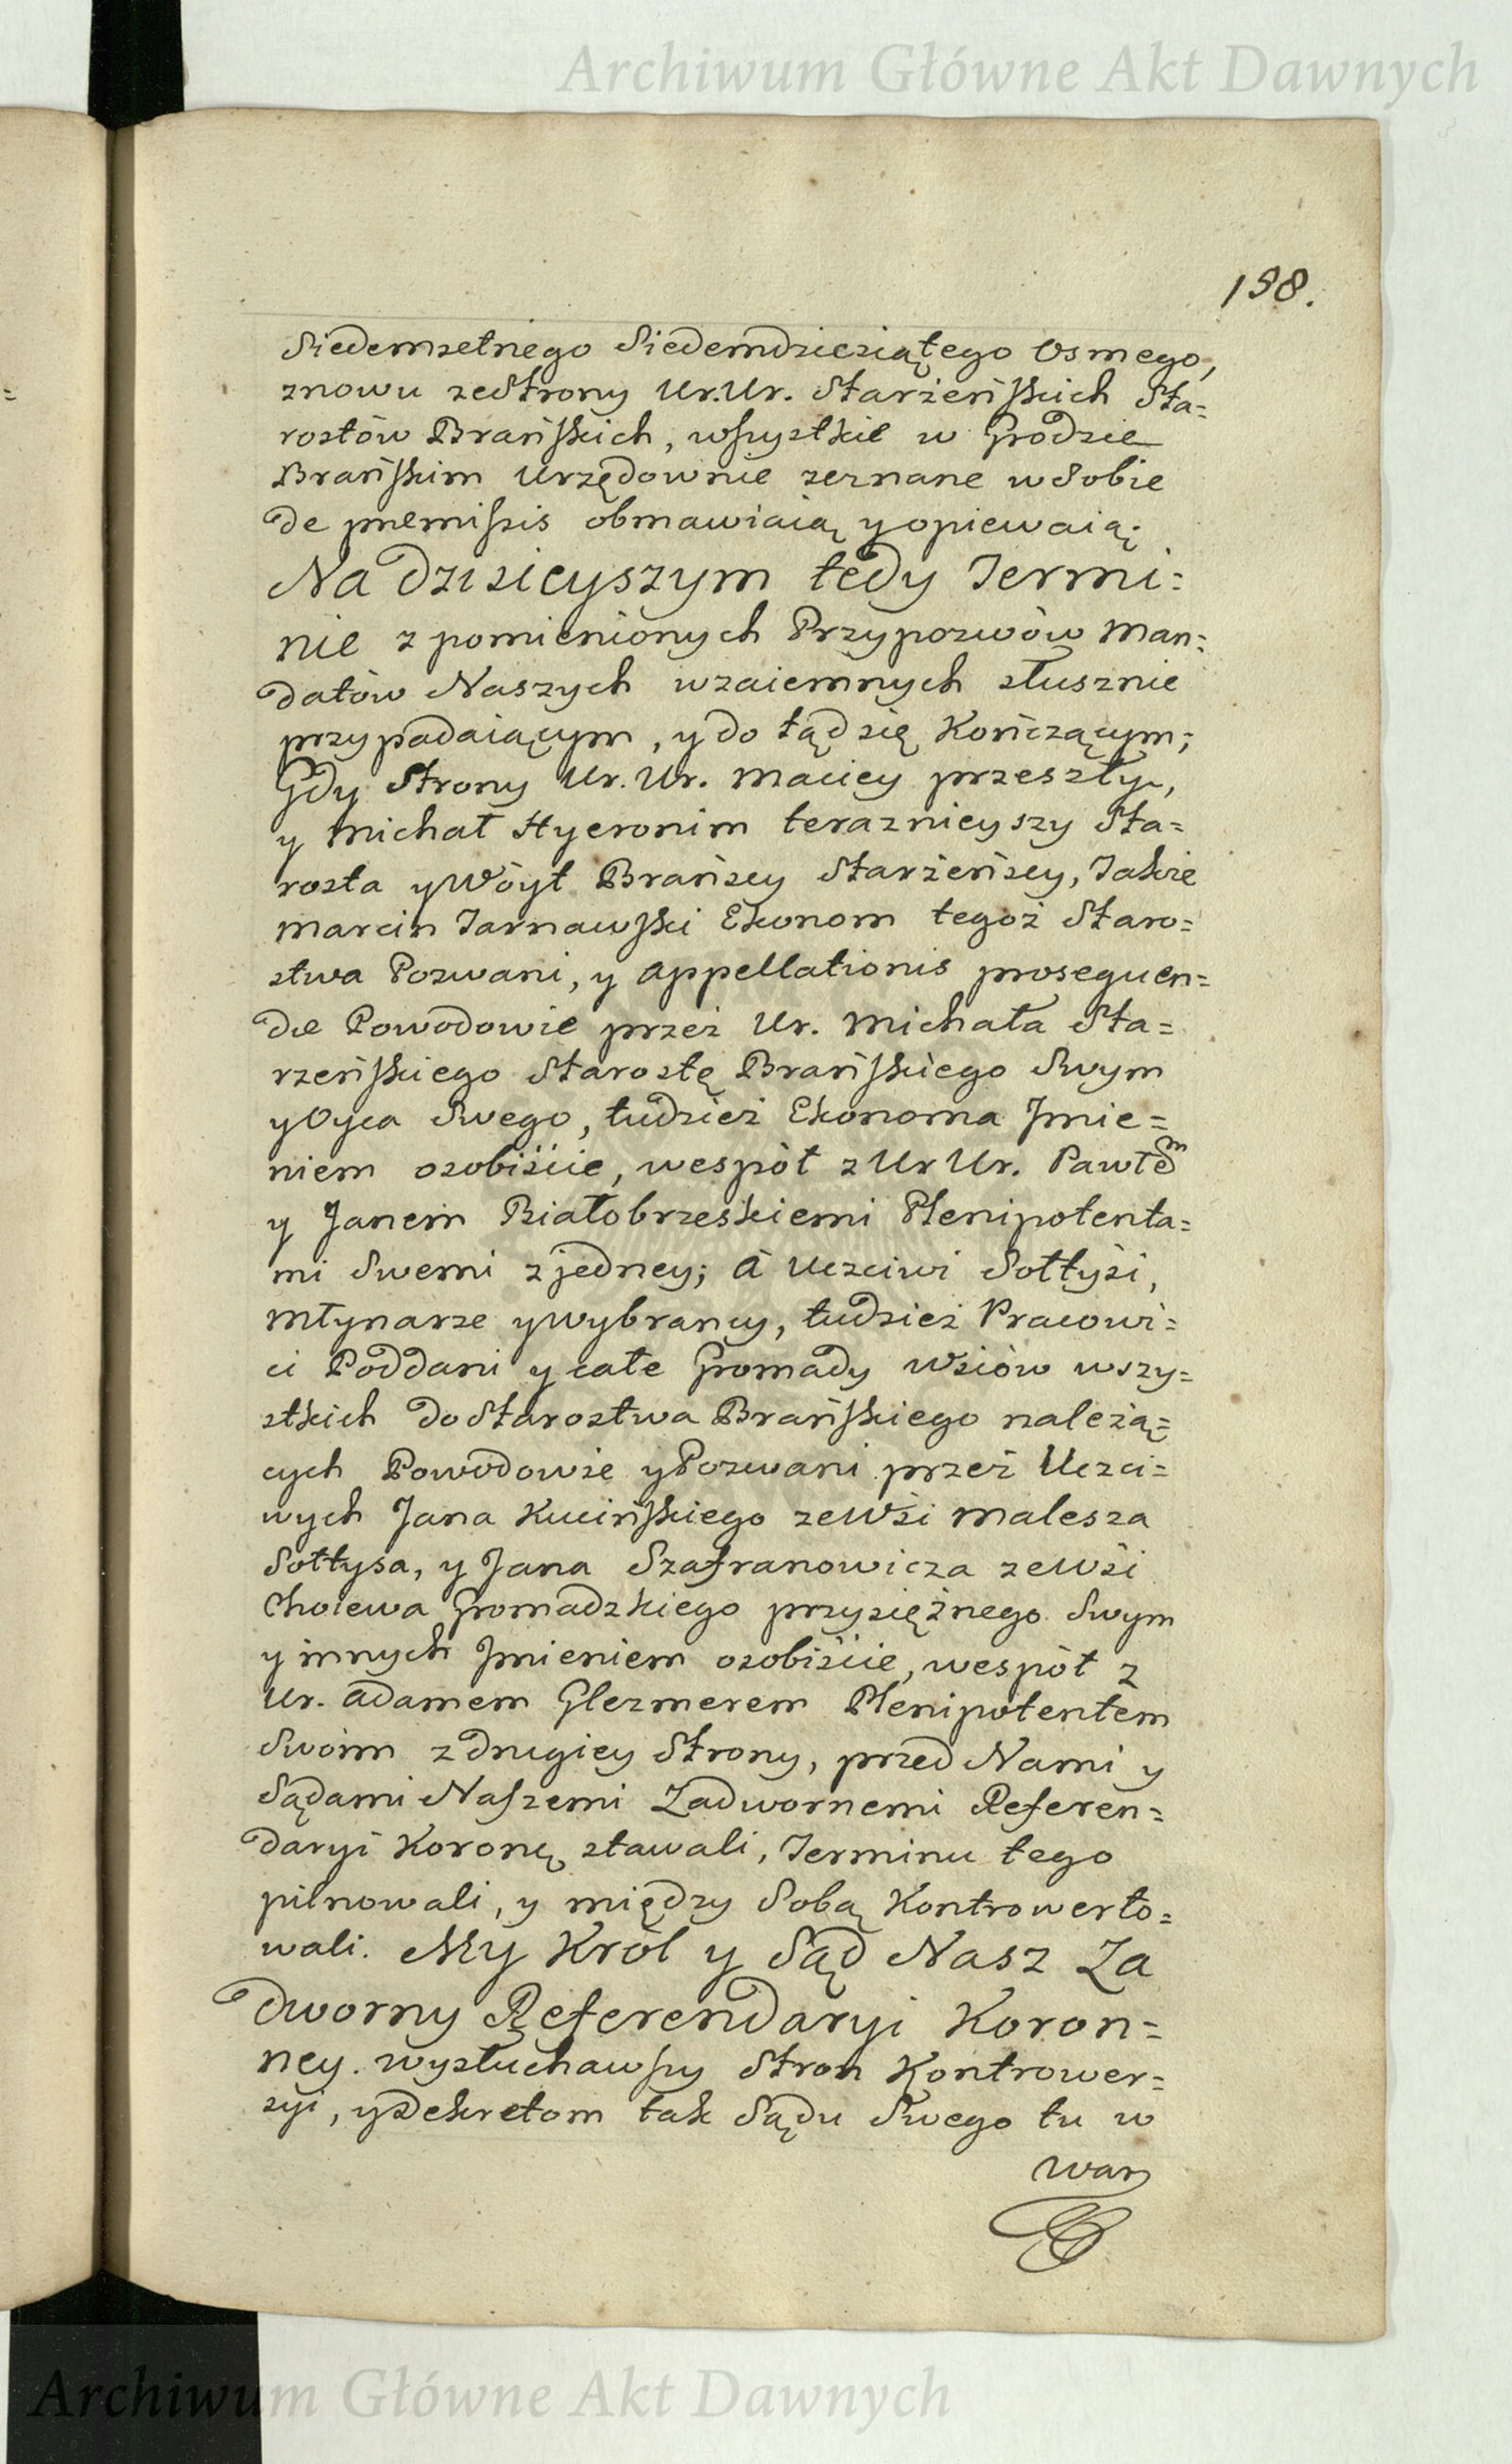 Archiwum Główne Akt Dawnych
198.
Siedemsetnego Siedemdziesiątego Osmego,
znowu zeStrony Ur. Ur. Starżeńskich Sta=
rostów Brańskich, wszystkie w Grodzie
Brańskim Urzędownie zeznane w Sobie
de præmissis obmawiaią y opiewaią.
Na dzisieyszym tedy Termi=
nie z pomienionych Przypozwów Man=
datów Naszych wzaiemnych słusznie
przypadaiącym, y do tąd się Kończącym;
Gdy Strony Ur. Ur. Maciey przeszły,
y Michał Hyeronim teraznieyszy Sta=
rosta y Wóyt Brańscy Starżeńscy, Takie
Marcin Tarnawski Ekonom tegoż Staro=
stwa Pozwani, y appellationis prosequen=
dæ Powodowie przez Ur. Michała Sta=
rzeńskiego Starostę Brańskiego Swym
y Oyca Swego, tudzież Ekonoma Jmie=
niem osobiście, wespół z Ur Ur. Pawłem
y Janem Białobrzeskiemi Plenipotenta=
mi Swemi z jedney; á Uczciwi Sołtysi,
Młynarze y wybrancy, tudzież Pracowi=
ci Poddani y całe Gromady Wsiów wszy=
stkich do Starostwa Brańskiego należą=
cych Powodowie y Pozwani przez Uczci=
wych Jana Kucińskiego ze Wsi Malesza
Sołtysa, y Jana Szafranowicza ze Wsi
Choiewa Gromadzkiego przysiężnego Swym
y innych Jmieniem osobiście, wespół z
Ur. Adamem Glezmerem Plenipotentem
Swoim z drugiey Strony, przed Nami y
Sądami Naszemi Zadwornemi Referen=
daryi Koronę stawali, Terminu tego
pilnowali, y między Sobą Kontrowerto=
wali. My Król y Sąd Nasz Za
dworny Referendaryi Koron=
ney. wysłuchawszy Stron Kontrower=
syi, y Dekretom tak Sądu Swego tu w
War
Archiwum Główne Akt Dawnych